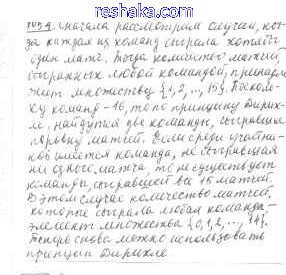 reshaka.com
№54. Сначала рассмотрим случай, ког-
да каждая из команд сыграла хотя бы
один матч. Тогда количество матчей,
сыгранных любой командой, принадле
жит множеству {1, 2, ..., 15}. Посколь-
ку команд - 16, то по принципу Дирих-
ле, найдутся две команды, сыгравшие
поровну матчей. Если среди участни-
ков имеется команда, не сыгравшая
ни одного матча, то не существует
команды, сыгравшей все 15 матчей.
В этом случае количество матчей,
которые сыграла любая команда -
элемент множества {0, 1, 2, ..., 14}.
Теперь снова можно использовать
принцип Дирихле.
reshaka.com